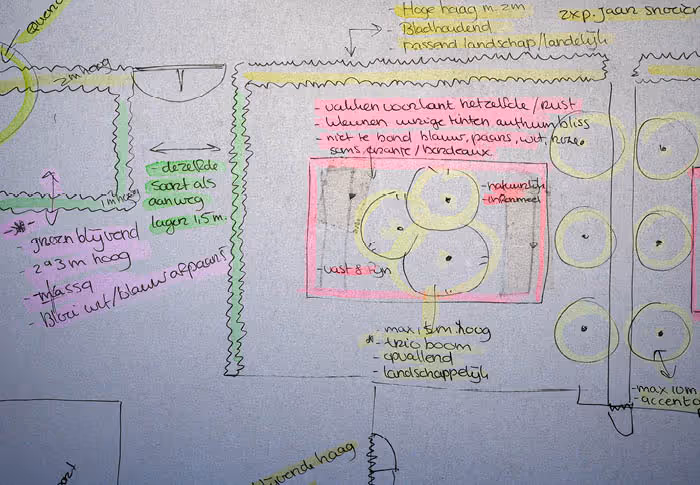 - Hoge haag m. 2m
- Bladhoudend
- passend landschap/landelijk
2x p. jaar snoeien
2m hoog
- vakken voorkant hetzelfde / rust
- kleuren
tinten,
bliss
- niet te bond blauw, paars, wit, roze
soms oranje / bordeaux
- dezelfde
soort als
aanweg
lager 1,5 m.
1m hoog
- groen blijvend
- 2 a 3 m hoog
- massa
- Bloei wit/blauw/
- natuurlijk
- vast &
- max
hoog
* - trio boom
- opvallend
- landschappelijk
- max 10m
- accent
haag